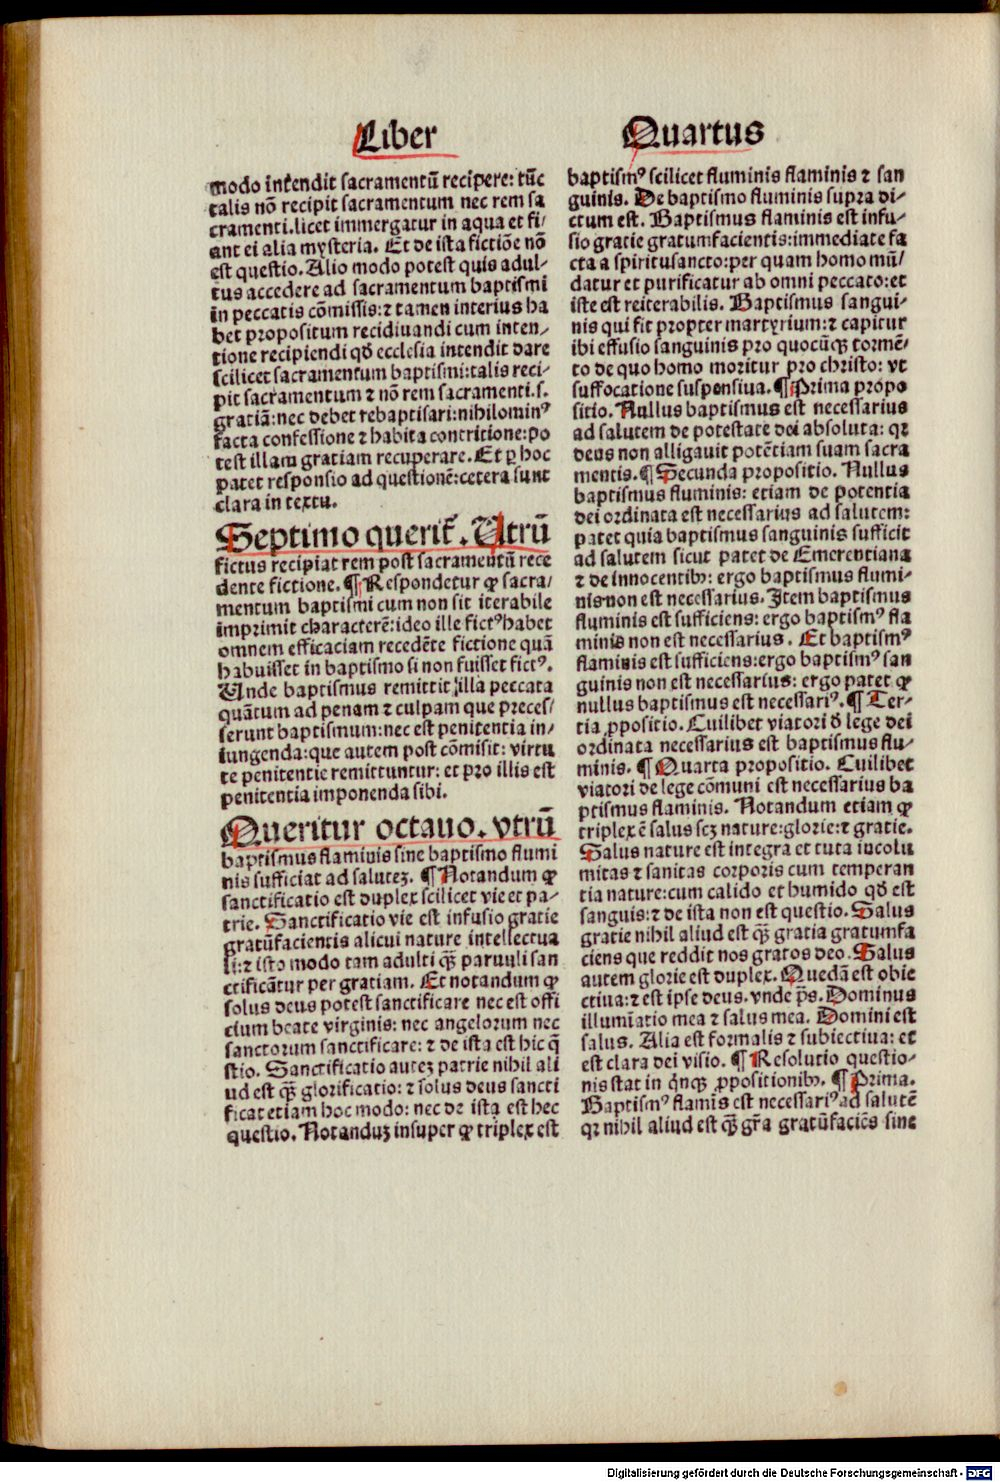 Liber
modo intendit sacramentū recipere: tūc
talis nō recipit sacramentum nec rem sa
cramenti.licet immergatur in aqua et fi/
ant ei alia mysteria. Et de ista fictiōe nō
est questio. Alio modo potest quis adul-
tus accedere ad sacramentum baptismi
in peccatis cōmissis: ⁊ tamen interius ha
bet propositum recidiuandi cum inten/
tione recipiendi qď ecclesia intendit dare
scilicet sacramentum baptismi:talis reci-
pit sacramentum ⁊ nō rem sacramenti.s.
gratiā:nec debet rebaptisari:nihilominꝰ
facta confessione ⁊ habita contritione:po
test illam gratiam recuperare. Et ꝑ hoc
patet responsio ad questionē:cetera sunt
clara in textu.
Septimo querit̄. Utrū
fictus recipiat rem post sacramentū rece
dente fictione. ¶ Respondetur ꝙ sacra/
mentum baptismi cum non sit iterabile
imprimit characterē:ideo ille fictꝰ habet
omnem efficaciam recedēte fictione quā
habuisset in baptismo si non fuisset fictꝰ.
Unde baptismus remittit illa peccata
quātum ad penam ⁊ culpam que preces/
serunt baptismum:nec est penitentia in/
iungenda:que autem post cōmisit: virtu
te penitentie remittuntur: et pro illis est
penitentia imponenda sibi.
Queritur octauo. vtrū
baptismus flaminis sine baptismo flumi
nis sufficiat ad saluteꝫ. ¶ Notandum ꝙ
sanctificatio est duplex scilicet vie et pa-
trie. Sanctificatio vie est infusio gratie
gratūfacientis alicui nature intellectua
li:⁊ isto modo tam adulti qꝫ̄ paruuli san
ctificātur per gratiam. Et notandum ꝙ
solus deus potest sanctificare nec est offi
cium beate virginis: nec angelorum nec
sanctorum sanctificare: ⁊ de ista est hic q̄
stio. Sanctificatio auteꝫ patrie nihil ali
ud est qꝫ̄ glorificatio: ⁊ solus deus sancti
ficat etiam hoc modo: nec de ista est hec
questio. Notanduꝫ insuper ꝙ triplex est
Quartus
baptismꝰ scilicet fluminis flaminis ⁊ san
guinis. De baptismo fluminis supra di-
ctum est. Baptismus flaminis est infu-
sio gratie gratumfacientis:immediate fa
cta a spiritusancto:per quam homo mū/
datur et purificatur ab omni peccato:et
iste est reiterabilis. Baptismus sangui-
nis qui fit propter martyrium:⁊ capitur
ibi effusio sanguinis pro quocūqꝫ tormē/
to de quo homo moritur pro christo: vt
suffocatione suspensiua. ¶ Prima propo
sitio. Nullus baptismus est necessarius
ad salutem de potestate dei absoluta: qꝛ
deus non alligauit potētiam suam sacra
mentis. ¶ Secunda propositio. Nullus
baptismus fluminis: etiam de potentia
dei ordinata est necessarius ad salutem:
patet quia baptismus sanguinis sufficit
ad salutem sicut patet de Emerentiana
⁊ de innocentibꝰ: ergo baptismus flumi-
nis non est necessarius. Item baptismus
fluminis est sufficiens: ergo baptismꝰ fla
minis non est necessarius. Et baptismꝰ
flaminis est sufficiens:ergo baptismꝰ san
guinis non est necessarius: ergo patet ꝙ
nullus baptismus est necessariꝰ. ¶ Ter-
tia ꝓpositio. Cuilibet viatori ď lege dei
ordinata necessarius est baptismus flu-
minis. ¶ Quarta propositio. Cuilibet
viatori de lege cōmuni est necessarius ba
ptismus flaminis. Notandum etiam ꝙ
triplex ē salus scꝫ nature:glorie:⁊ gratie.
Salus nature est integra et tuta incolu
mitas ⁊ sanitas corporis cum temperan
tia nature:cum calido et humido qď est
sanguis:⁊ de ista non est questio. Salus
gratie nihil aliud est qꝫ̄ gratia gratumfa
ciens que reddit nos gratos deo. Salus
autem glorie est duplex. Quedā est obie
ctiua:⁊ est ipse deus. vnde p̄s. Dominus
illumīatio mea ⁊ salus mea. Domini est
salus. Alia est formalis ⁊ subiectiua: et
est clara dei visio. ¶ Resolutio questio-
nis stat in q̄nqꝫ ꝓpositionibꝰ. ¶ Prima.
Baptismꝰ flamīs est necessariꝰ ad salutē
qꝛ nihil aliud est qꝫ̄ gr̄a gratūfaciēs sine
Digitalisierung gefördert durch die Deutsche Forschungsgemeinschaft - DFG